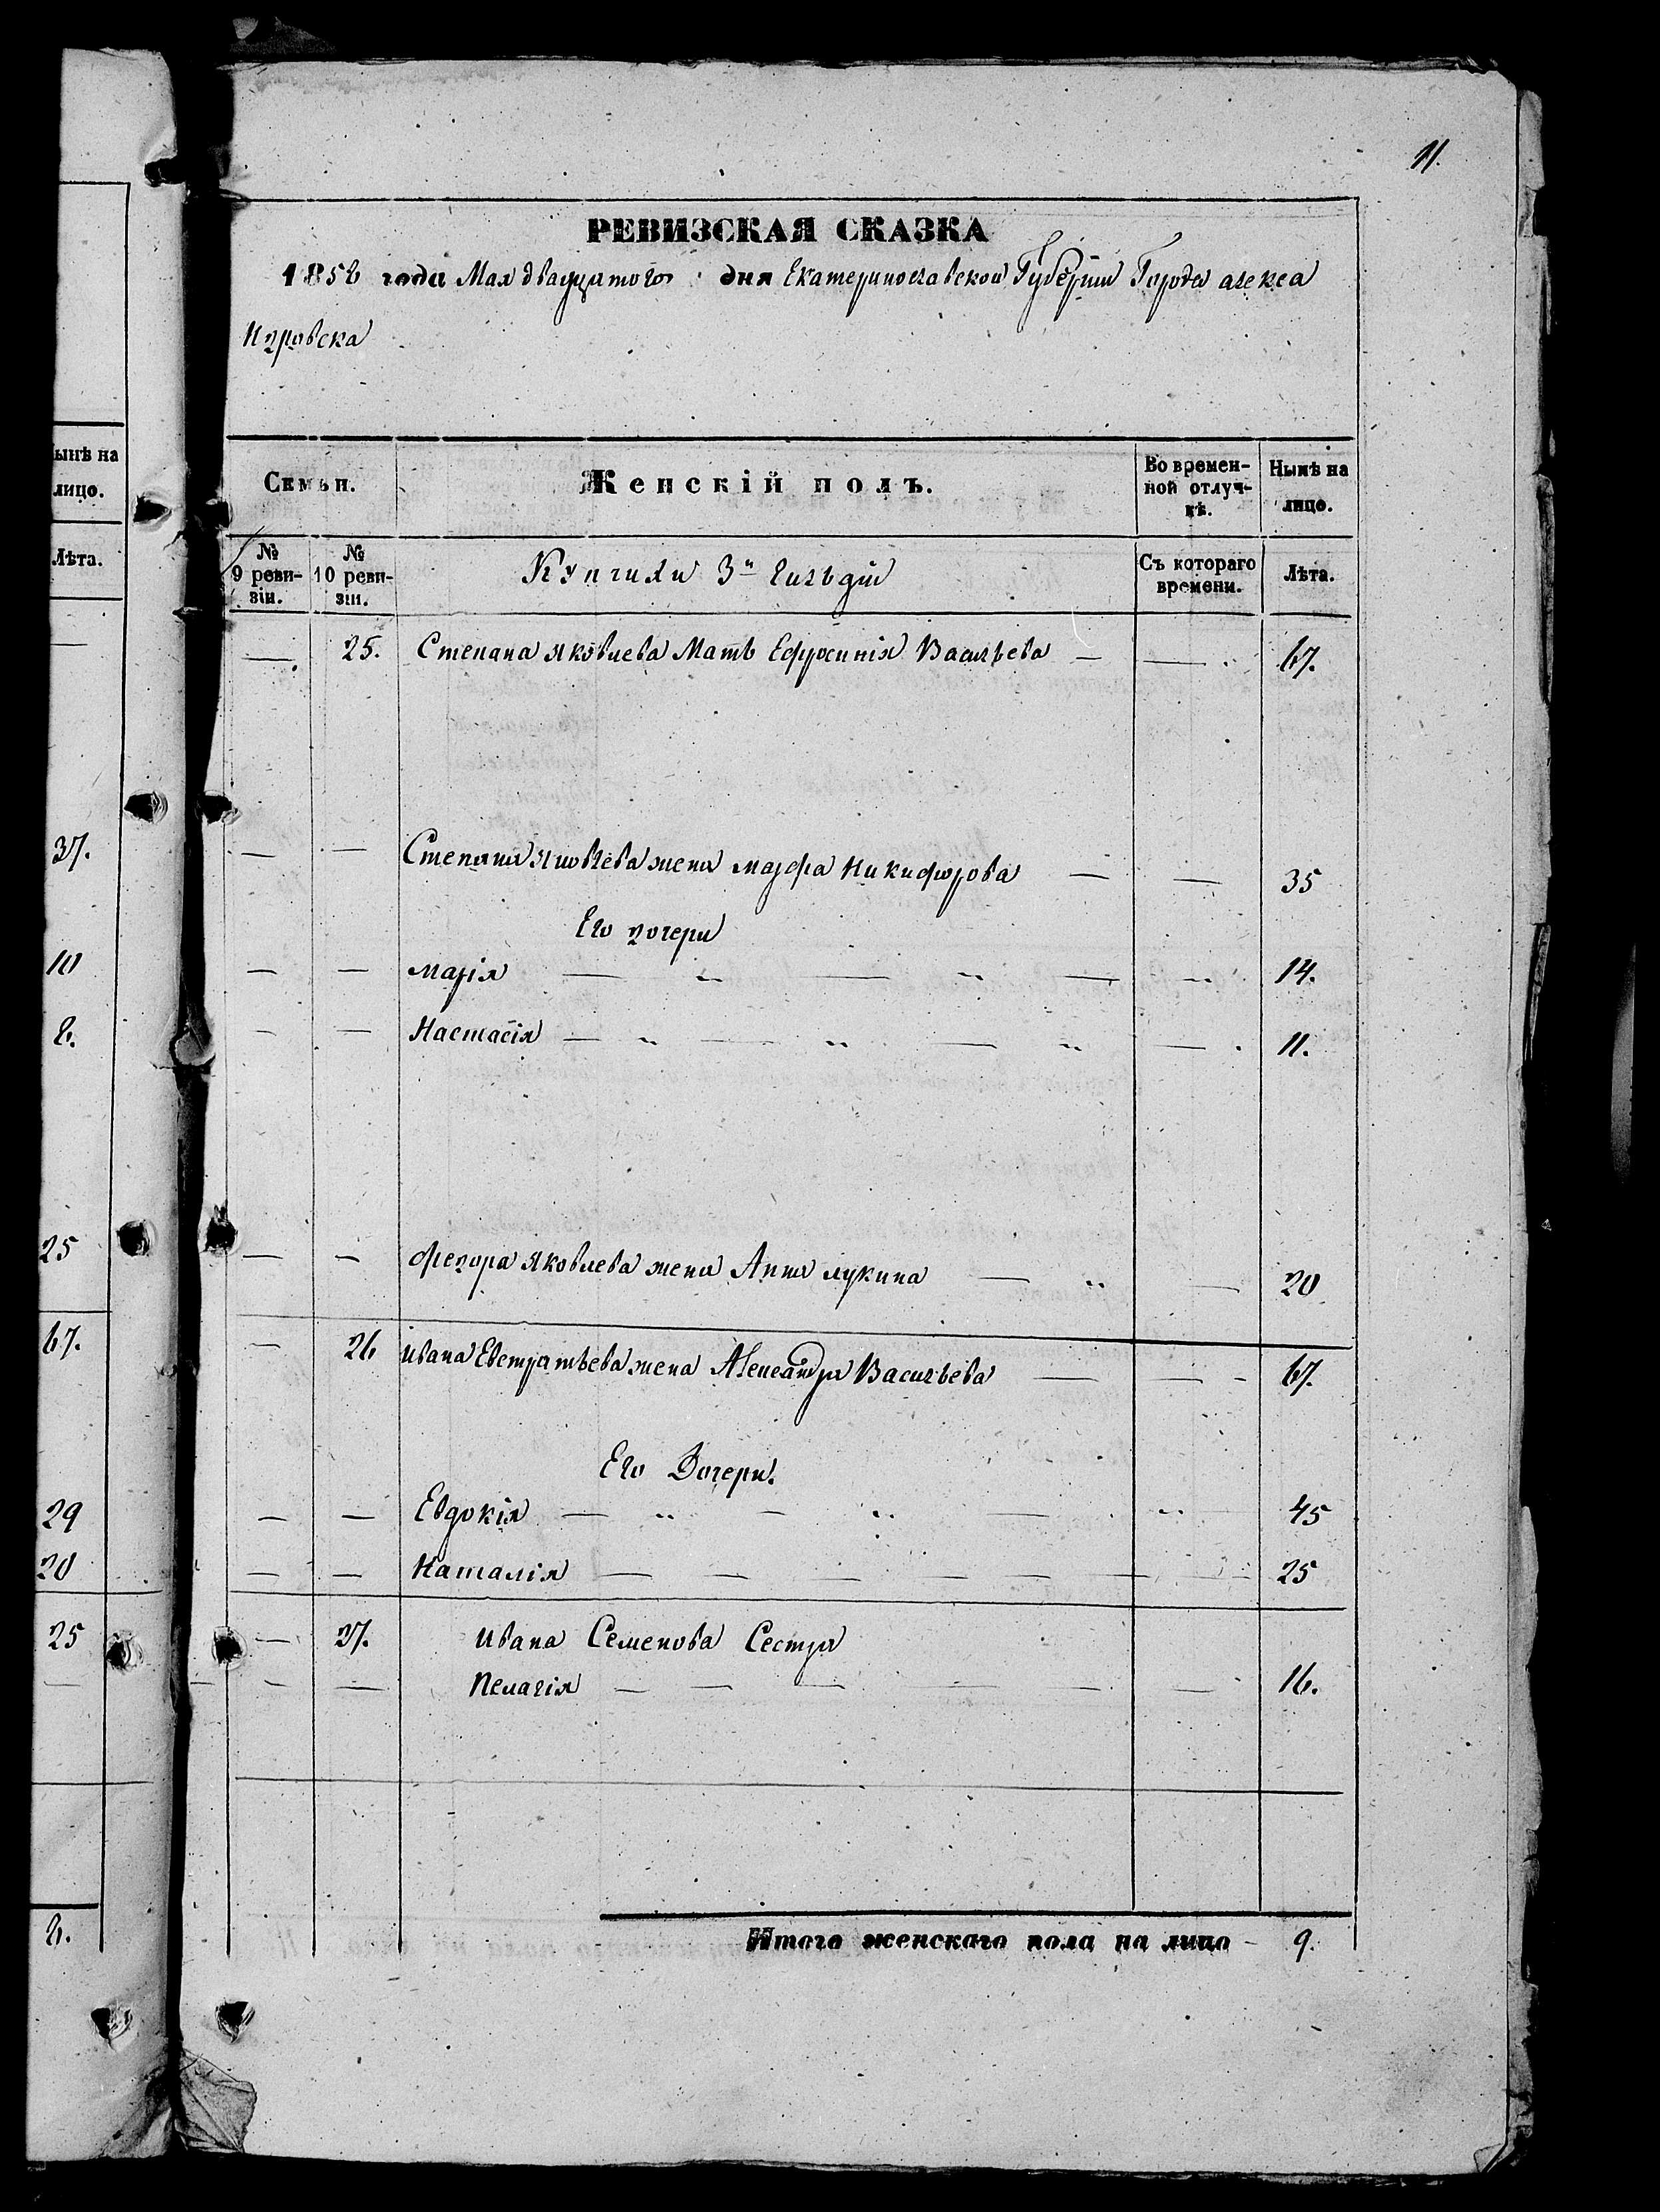 11.
РЕВИЗСКАЯ СКАЗКА
1858 года Мая двадцатого дня Екатеринославской Губерніи Города алекса
ндровска
ынѣ на
лицо.
Лѣта.
Семьи.
Женскій полъ.
Во времен-
ной отлуч-
кѣ.
Нынѣ на
лицо.
№
9 реви-
зіи.
№
10 реви-
зіи.
Купчихи 3й гильдіи
Съ котораго
времени.
Лѣта.
— 25. Степана яковлева Мать Ефросинія Васильева — — 67.
37.
— — Степана яковлева жена марфа никифорова — — 35
Его дочери
10
— — марія — — — 14.
6.
— — Настасія — — — — 11.
25
— — федора яковлева жена Анна лукина — — 20
67.
— 26 ивана Евстратьева жена Александра Васильева — — 67.
Его Дочери.
29
— — Евдокія — — — 45
20
— — Наталія — — — — — — 25
25
— 27. ивана Семенова Сестра
— — Пелагія — — — — — — 16.
6.
Итого женскаго пола на лицо — 9.